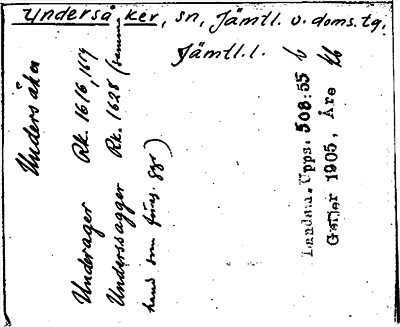 Undersåker, sn, Jämtl. v. doms. tg.
Jämtl. l.
Undersåker
Underager Rk. 1616, 1619
Underssagger Rk. 1628 (samma
hand som föreg. ggr)
Landsm. Upps. 508:55 b
Geijer 1905, Åre kb